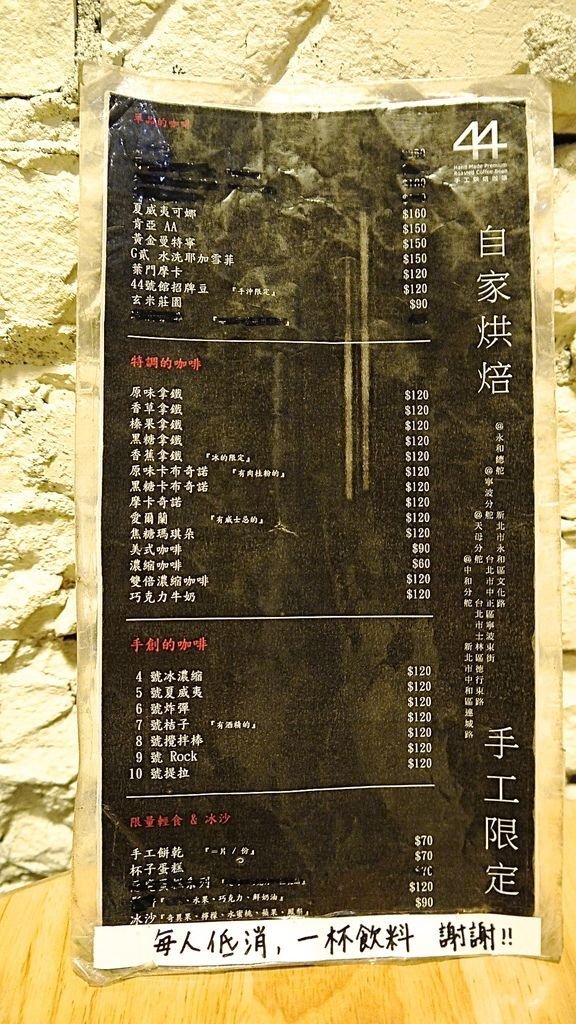 44
Hand Made Premium
Roasted Coffee Bean
手工烘焙咖啡
自家烘焙
手工限定
@永和總舵 新北市永和區文化路
@寧波分舵 台北市中正區寧波東街
@天母分舵 台北市士林區德行東路
@中和分舵 新北市中和區連城路
單品的咖啡
夏威夷可娜 $160
肯亞 AA $150
黃金曼特寧 $150
G貳 水洗耶加雪菲 $150
葉門摩卡 $120
44號館招牌豆 『手沖限定』 $120
玄米莊園 $90
特調的咖啡
原味拿鐵 $120
香草拿鐵 $120
榛果拿鐵 $120
黑糖拿鐵 $120
香蕉拿鐵 『冰的限定』 $120
原味卡布奇諾 『有肉桂粉的』 $120
黑糖卡布奇諾 $120
摩卡奇諾 $120
愛爾蘭 『有威士忌的』 $120
焦糖瑪琪朵 $120
美式咖啡 $90
濃縮咖啡 $60
雙倍濃縮咖啡 $120
巧克力牛奶 $120
手創的咖啡
4 號冰濃縮 $120
5 號夏威夷 $120
6 號炸彈 $120
7 號桔子 『有酒精的』 $120
8 號攪拌棒 $120
9 號 Rock $120
10 號提拉 $120
限量輕食 & 冰沙
手工餅乾 『一片 / 份』 $70
杯子蛋糕 $70
系列
水果、巧克力、鮮奶油』 $120
冰沙『奇異果、檸檬、水蜜桃、蘋果、鳳梨』 $90
每人低消，一杯飲料 謝謝!!